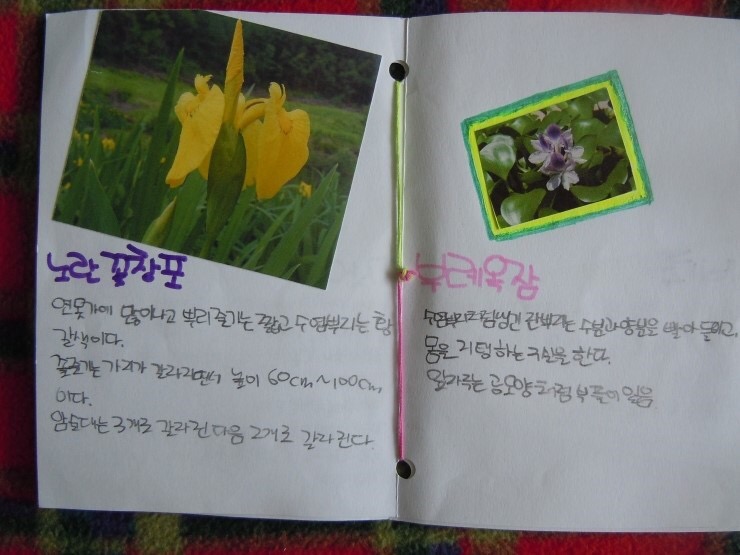 노란 꽃창포
연못가에 많이나고 뿌리줄기는 짧고 수염뿌리는 황
갈색이다.
꽃줄기는 가지가 갈라지면서 높이 60cm~100cm
이다.
암술대는 3개로 갈라진다음 2개로 갈라진다.
부레옥잠
수염뿌리처럼생긴 잔뿌리는 수분과 양분을 빨아 들이고,
몸을 지텅하는 구실을 한다.
잎자루는 공모양처럼 부풀어 있음